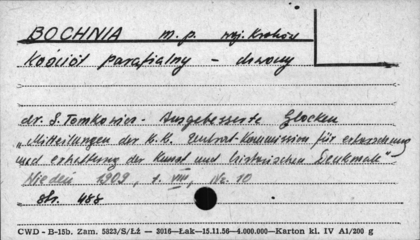 BOCHNIA m.p. woj. Kraków
Kościół parafialny - dzwony
dr. S. Tomkowicz - Ausgebesserte Glocken
"Mitteilungen der K.K. Zentral-Kommission für erforschung
und erhaltung der Kunst und historischen Denkmale"
Wiedeń 1909, t. VIII, No. 10
str. 488
CWD - B-15b. Zam. 5323/S/Łż — 3016—Łak—15.11.56—4.000.000—Karton kl. IV A1/200 g